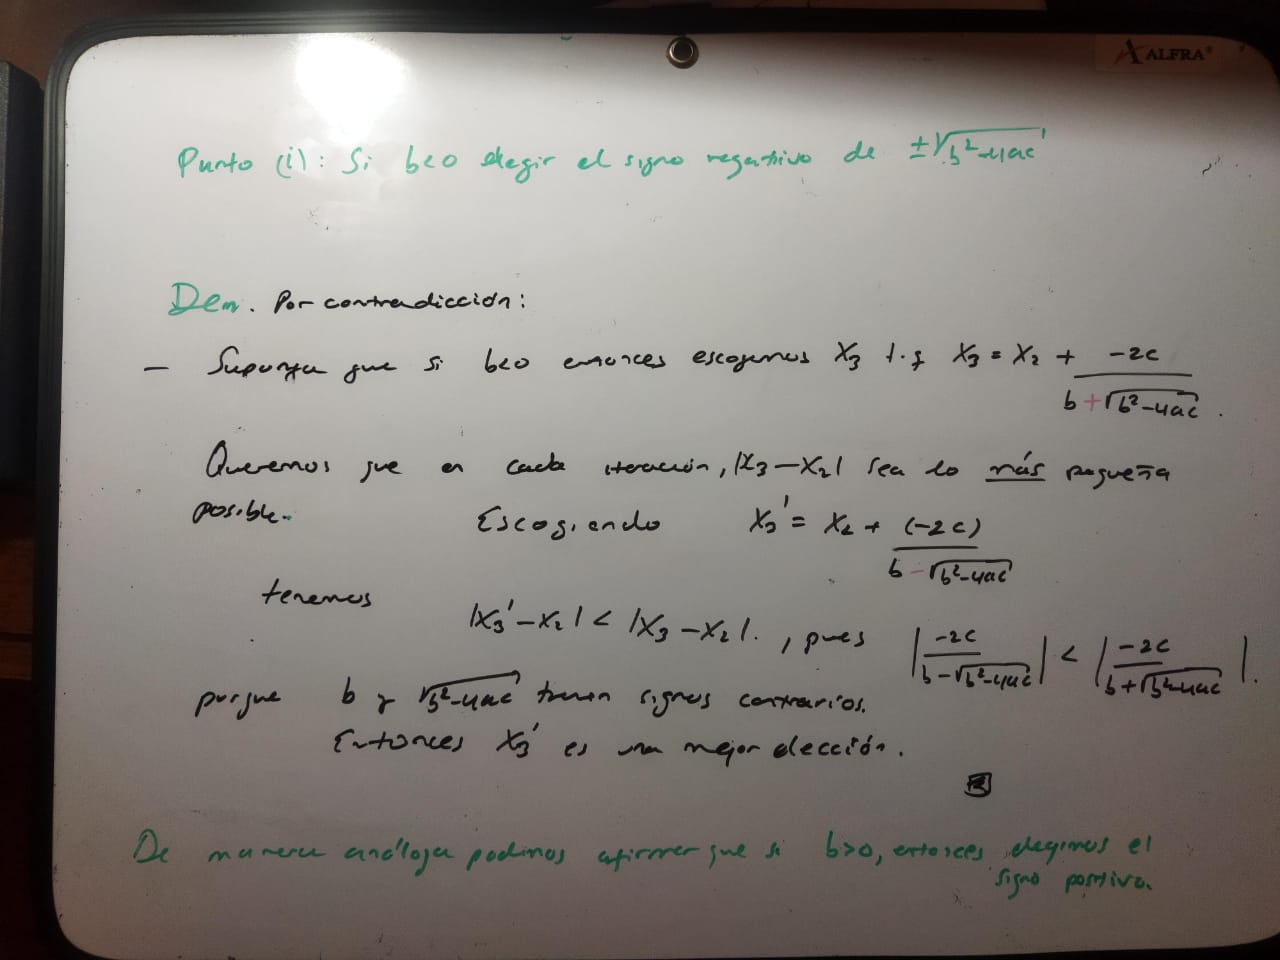 ALFRA®
Punto (i): Si b<0 elegir el signo negativo de ±√(b²-4ac)
Dem. Por contradicción:
— Suponga que si b<0 entonces escogemos X₃ t.q X₃ = X₂ + -2c / (b+√(b²-4ac)).
Queremos que en cada iteración, |X₃-X₂| sea lo más pequeña
posible. Escogiendo X₃' = X₂ + (-2c) / (b-√(b²-4ac))
tenemos
|X₃'-X₂| < |X₃-X₂|. , pues |-2c / (b-√(b²-4ac))| < |-2c / (b+√(b²-4ac))|.
porque b y √(b²-4ac) tienen signos contrarios.
Entonces X₃' es una mejor elección.
De manera análoga podemos afirmar que si b>0, entonces elegimos el
signo positivo.